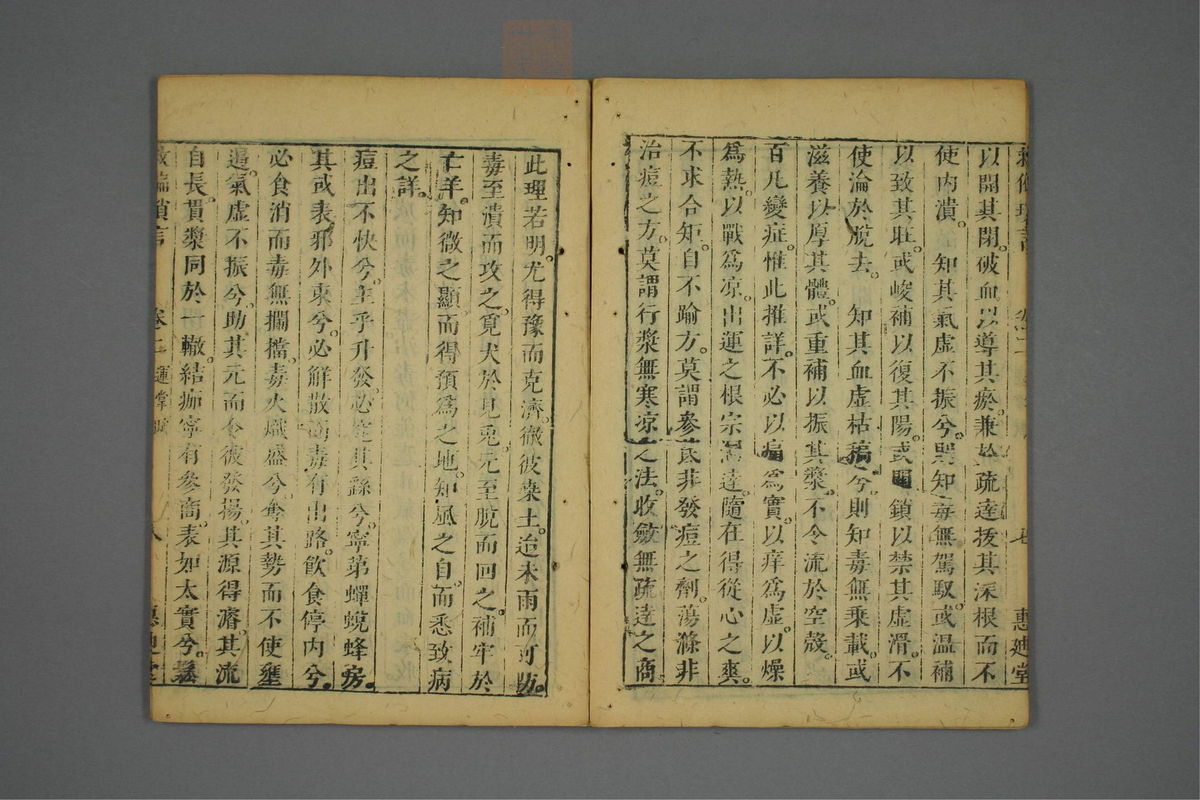 以開其閉。破血以導其瘀。兼於疏達拔其深根而不
使内潰。知其氣虛不振兮。則知毒無駕馭。或溫補
以致其旺。或峻補以復其陽。或關鎖以禁其虛滑。不
使淪於脫去。知其血虛枯槁兮。則知毒無乘載。或
滋養以厚其體。或重補以振其漿。不令流於空殼。
百凡變症。惟此推詳。不必以痛爲實。以痒爲虛。以燥
爲熱。以戰爲凉。出運之根宗 達。隨在得從心之爽。
不求合矩。自不踰方。莫謂參芪非發痘之劑。蕩滌非
治痘之方。莫謂行漿無寒凉之法。收斂無疏達之商。
惠廸堂
此理若明。尤得豫而克濟。徹彼桑土。迨未雨而可防。
毒至潰而攻之。覓犬於見兎。元至脫而回之。補牢於
亡羊。知微之顯。而得預爲之地。知風之自。而悉致病
之詳。
痘出不快兮。主乎升發。必究其繇兮。寧第蟬蛻蜂房。
其或表邪外束兮。必解散而毒有出路。飲食停内兮。
必食消而毒無攔擋。毒火熾盛兮。奪其勢而不使壅
遏。氣虛不振兮。助其元而令彼發揚。其源得濬。其流
自長。貫漿同於一轍。結痂寧有參商。表如太實兮。鬆
卷二 運掌賦
八